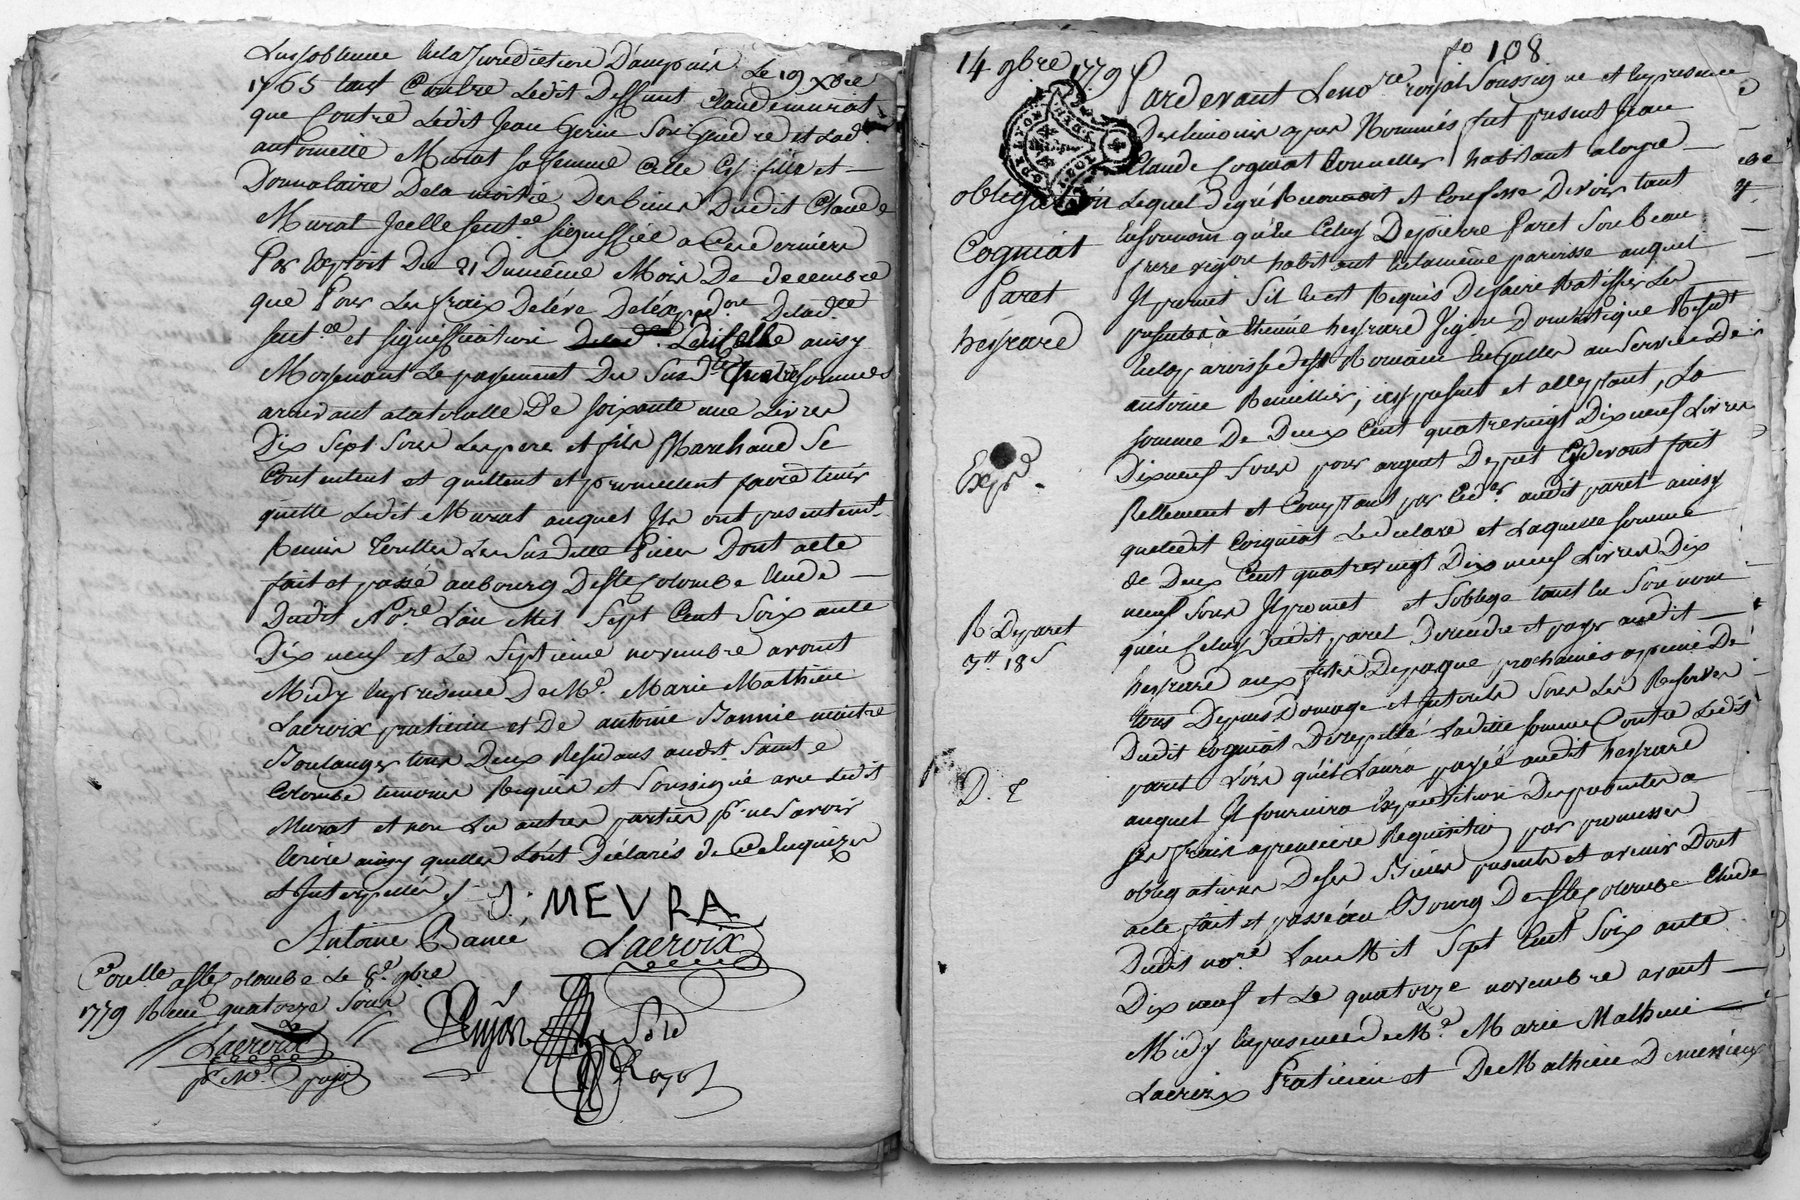 Lussobtenue En la Jurediction D'ampuis Le 19 Xbre
1765 tant Contre Ledit Deffunt Claude murat
que Contre Ledit Jean Gerin Son Gendre et Lad.
antoinette Murat sa femme Celle Cy fille et
Donnataire De la moitié Des biens Dudit Claude
Murat Jcelle Sentce signiffiée a Ces derniers
Par Exploit Du 21 Du même Mois De decembre
que Pour Les fraix De lévé De lexpedon De lad.
Sentce et signiffication D'Icelle ainsy
Moyenant Le payement Des Susd. quatre Sommes
arrivant a la totalle De soixante une Livres
Dix Sept Sous Les pere et fils Marchand Se
Contentent et quittent et promettent faire tenir
quitte Ledit Murat auquel Ils ont presentemt
Remis toutes Les Susdittes Pieces Dont acte
fait et passé au bourg De Ste Colombe Etude
Dudit Nore L'an Mil Sept Cent Soixante
Dix neuf et Le Septieme novembre avant
Midy En presence De Me Marie Mathieu
Lacroix praticien et De antoine Bannie maitre
Boulanger tous Deux Residans audit Sainte
Colombe temoins Requis et Soussigné avec Ledit
Murat et non Les autres parties pr ne Savoir
Ecrire ainsy quelles L'ont Déclarés de Ce Enquizes
et Interpellés
J. MEURA
Antoine Banié Lacroix
Conllé a Ste Colombe Le 8e 9bre
1779 Receu quatorze Sous
Lacroix
14 9bre 1779
fo 108
obligation
Cogniat
Paret
heyrard
Expd.
R. De paret
3tt 18 s
D. E
Pardevant Le nore royal Soussigné et En presence
Des temoins apres Nommés fut present Jean
Claude Cogniat Tonnellier habitant a Loyre
Lequel De gré Reconnoit et Confesse Devoir tant
En son nom qu'En Celuy De pierre Paret Son beau
frere vigon habitant En la même paroisse auquel
Il promet S'il En est Requis De faire Ratiffier Les
presentes à Etienne heyrard Vigon Domestique Resdt
En la paroisse de St Romain En Gallet au Service De
antoine Remillier, icy present et acceptant, La
Somme De Deux Cent quatre vingt Dix neuf Livres
Dix neuf Sous pour argent De pret Cydevant fait
Rellement et Comptant par Led. audit paret ainsy
que Ledit Cogniat Le declare et Laquelle Somme
de Deux Cent quatre vingt Dix neuf Livres Dix
neuf Sous Il promet et S'oblige tant En Son nom
qu'en Celuy Dudit paret De rendre et payer audit
heyrard aux fetes De paque prochaines a peine De
tous Depens Domage et Interets Sous Les Reserves
Dudit Cogniat De repetté Laditte Somme Contre Ledit
paret Lors qu'il L'aura payée audit heyrard
auquel Il fournira Expedition Des presentes a
Ses frais a premiere Requisition par promesses
obligations De Ses Biens presents et avenir Dont
acte fait et passé au Bourg De Ste Colombe Etude
Dudit nore L'an Mil Sept Cent Soixante
Dix neuf et Le quatorze novembre avant
Midy En presence de Me Marie Mathieu
Lacroix Praticien et De Mathieu Demenieux